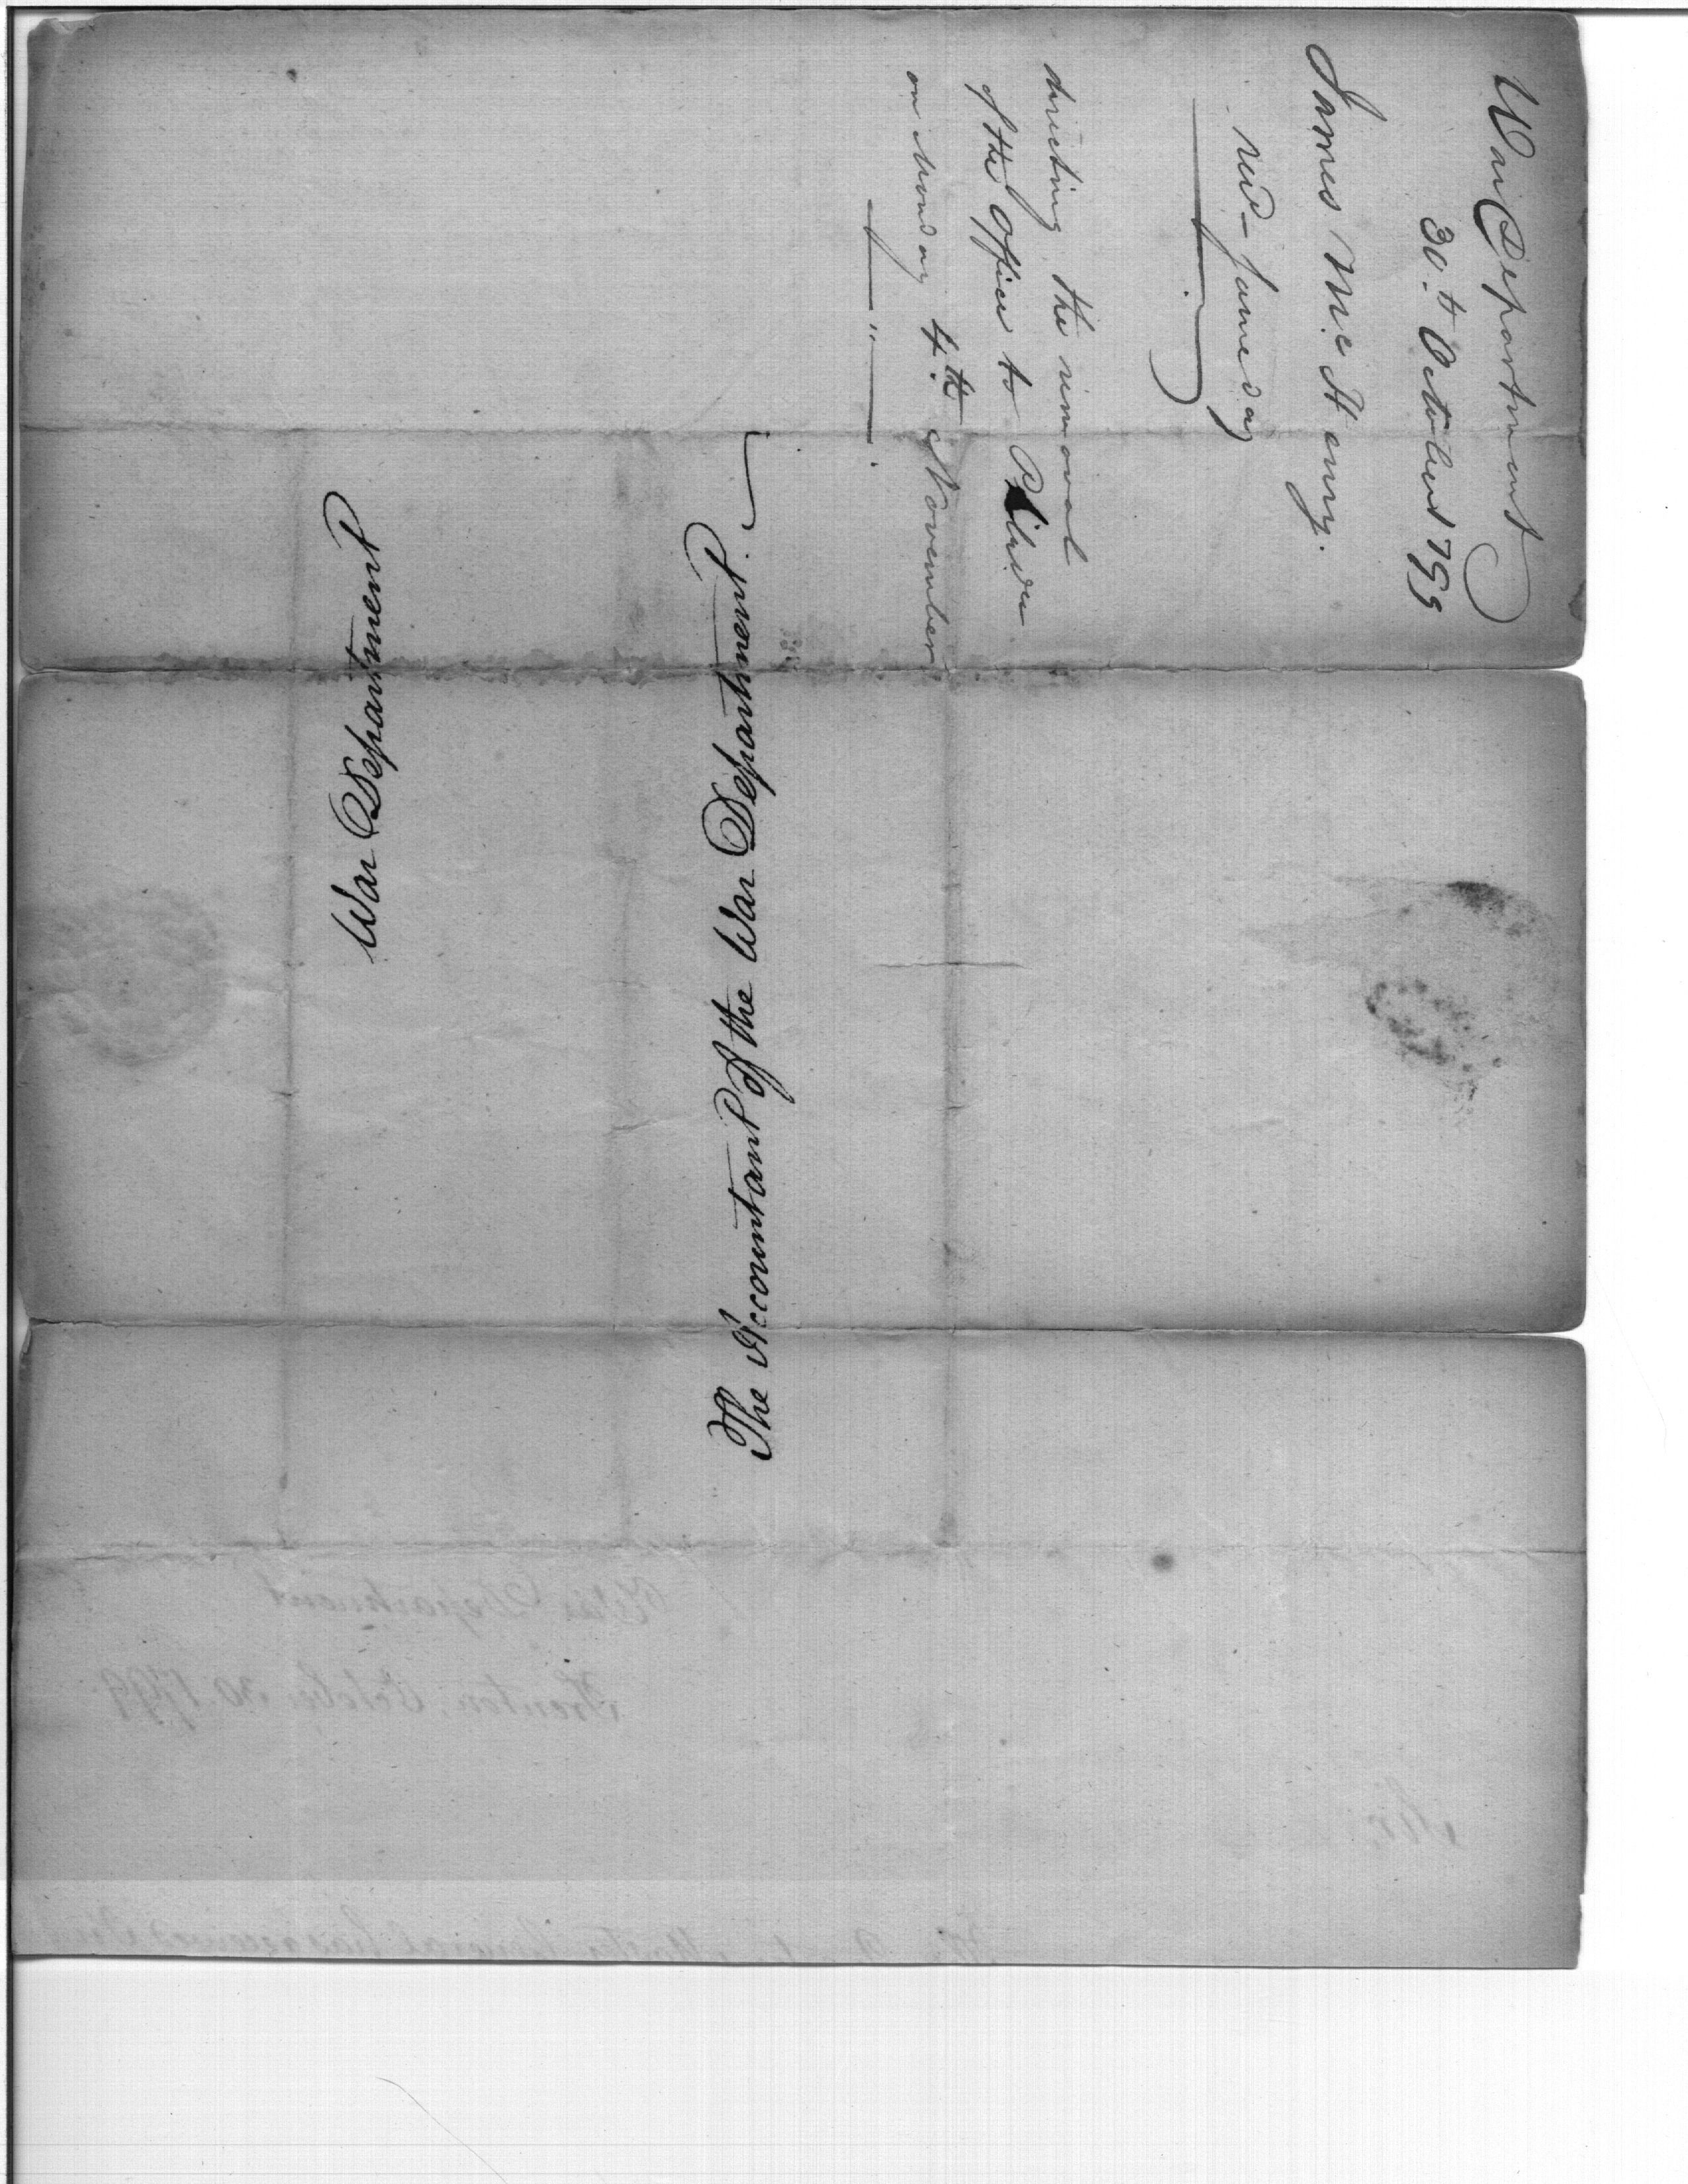 War Department
30.th October 1799
James McHenry.
recd. same day
directing the removal
of the Office to
on Monday 4.th November
War Department
The Accountant of the War Department.
War Department
Trenton, October 30 1799
Sir,